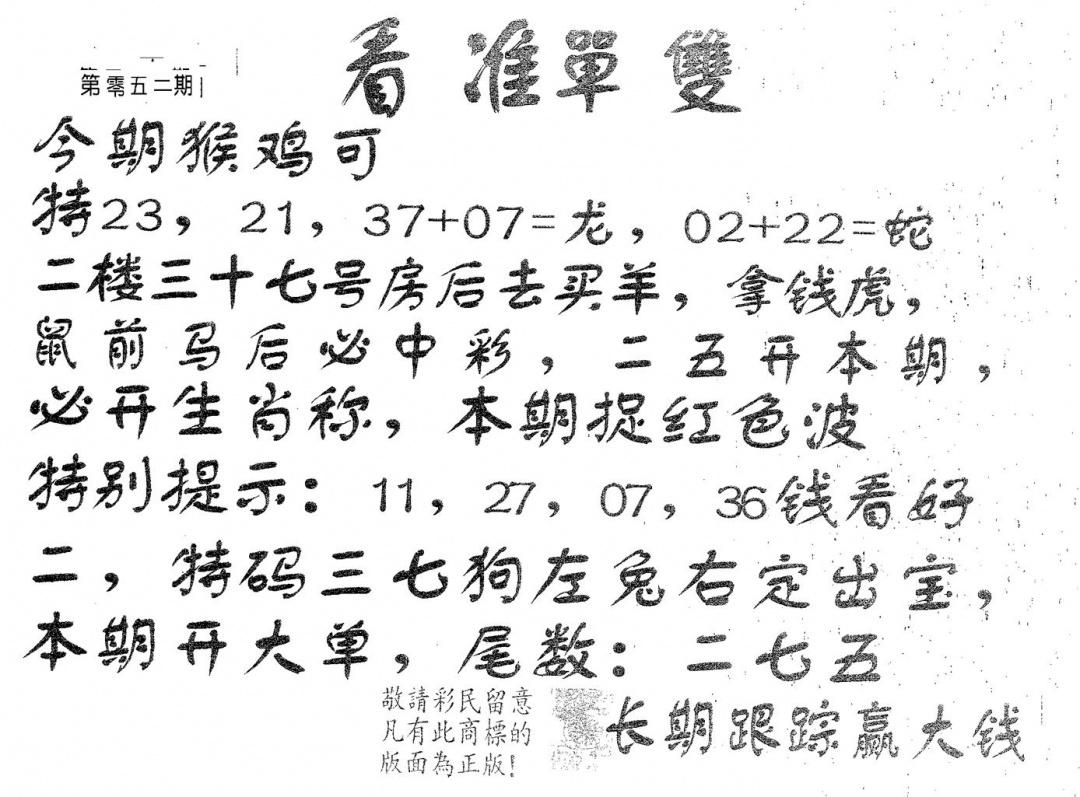 第零五二期
看准單雙
今期猴鸡可
特23，21，37+07=龙，02+22=蛇
二楼三十七号房后去买羊，拿钱虎，
鼠前马后必中彩，二五开本期，
必开生肖称，本期捉红色波
特别提示：11，27，07，36钱看好
二，特码三七狗左兔右定出宝，
本期开大单，尾数：二七五
敬請彩民留意
凡有此商標的
版面為正版！
长期跟踪赢大钱